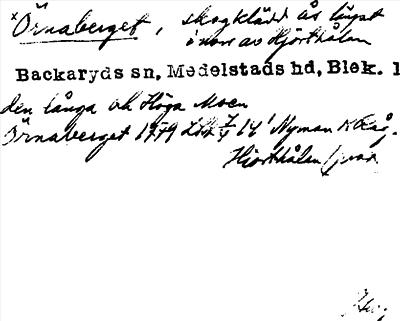 × Örnaberget, skogklädd ås längst
i norr av Hjörthålen
Backaryds sn, Medelstads hd, Blek. 1
den långa och Höga Moen
Örnaberget 1779 14 Nyman
Hjörthålen